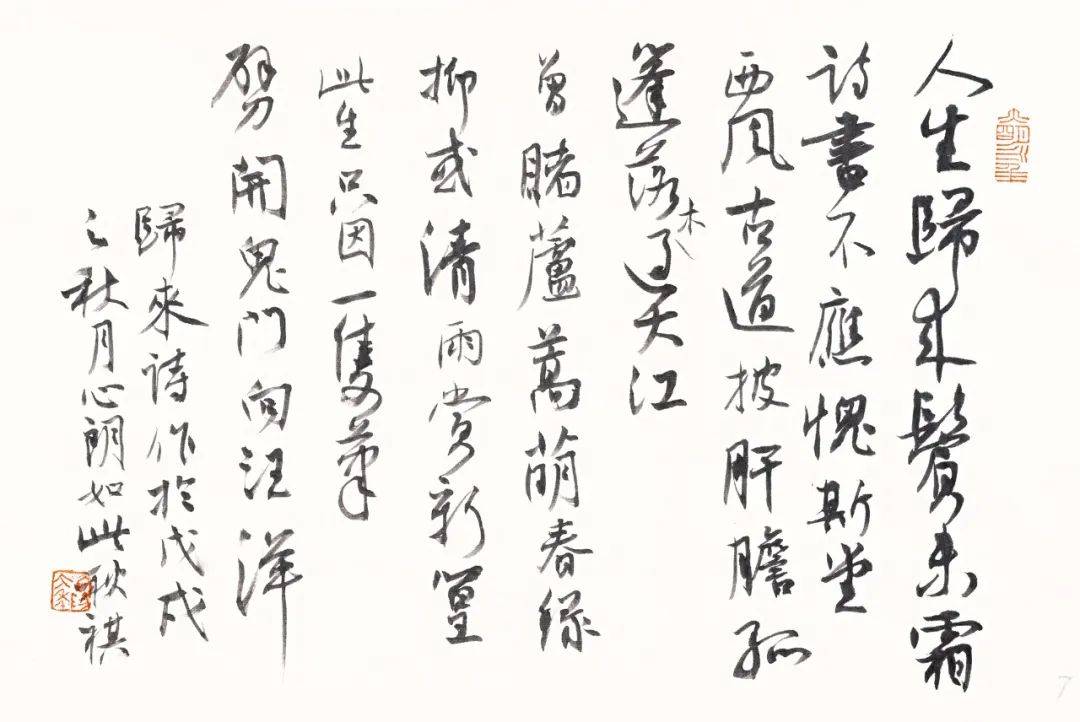 人生歸來鬢未霜
詩書不應愧斯堂
西風古道披肝膽孤
篷落木過大江
曾睹蘆蒿萌春綠
抑或清雨賞新篁
此生只因一隻筆
劈開鬼門向汪洋
歸來詩作於戊戌
之秋月心朗如此耿祺
7